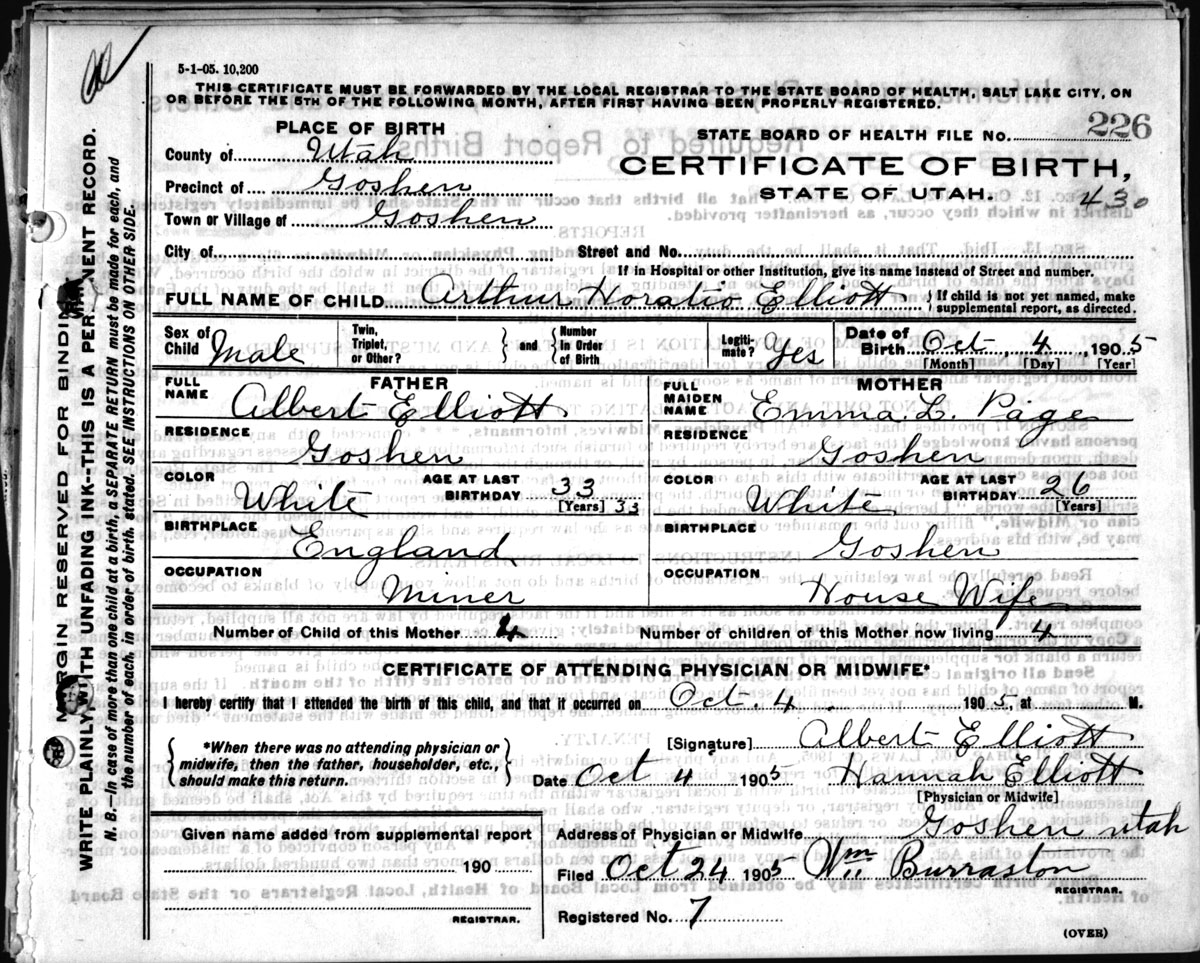 5-1-05. 10,200
THIS CERTIFICATE MUST BE FORWARDED BY THE LOCAL REGISTRAR TO THE STATE BOARD OF HEALTH, SALT LAKE CITY, ON
OR BEFORE THE 5TH OF THE FOLLOWING MONTH, AFTER FIRST HAVING BEEN PROPERLY REGISTERED.
PLACE OF BIRTH
STATE BOARD OF HEALTH FILE NO. 226
County of Utah
CERTIFICATE OF BIRTH,
Precinct of Goshen
STATE OF UTAH. 430
Town or Village of Goshen
City of Street and No.
If in Hospital or other Institution, give its name instead of Street and number.
FULL NAME OF CHILD Arthur Horatio Elliott { If child is not yet named, make
supplemental report, as directed.
Sex of Child Male Twin, Triplet, or Other? } and { Number in Order of Birth Legiti-mate? Yes Date of Birth Oct 4, 1905
[Month] [Day] [Year]
FATHER MOTHER
FULL NAME Albert Elliott FULL MAIDEN NAME Emma L. Page
RESIDENCE Goshen RESIDENCE Goshen
COLOR White AGE AT LAST BIRTHDAY 33 COLOR White AGE AT LAST BIRTHDAY 26
[Years] 33 [Years]
BIRTHPLACE England BIRTHPLACE Goshen
OCCUPATION Miner OCCUPATION House Wife
Number of Child of this Mother 4 Number of children of this Mother now living 4
CERTIFICATE OF ATTENDING PHYSICIAN OR MIDWIFE*
I hereby certify that I attended the birth of this child, and that it occurred on Oct. 4. 1905, at M.
{ *When there was no attending physician or
midwife, then the father, householder, etc.,
should make this return. }
[Signature] Albert Elliott
Date Oct 4 1905 Hannah Elliott
[Physician or Midwife]
Given name added from supplemental report
190
REGISTRAR.
Address of Physician or Midwife Goshen utah
Filed Oct 24 1905 Wm Burraston
REGISTRAR.
Registered No. 7
(OVER)
MARGIN RESERVED FOR BINDING
WRITE PLAINLY WITH UNFADING INK--THIS IS A PERMANENT RECORD.
N. B.--In case of more than one child at a birth, a SEPARATE RETURN must be made for each, and
the number of each, in order of birth, stated. SEE INSTRUCTIONS ON OTHER SIDE.